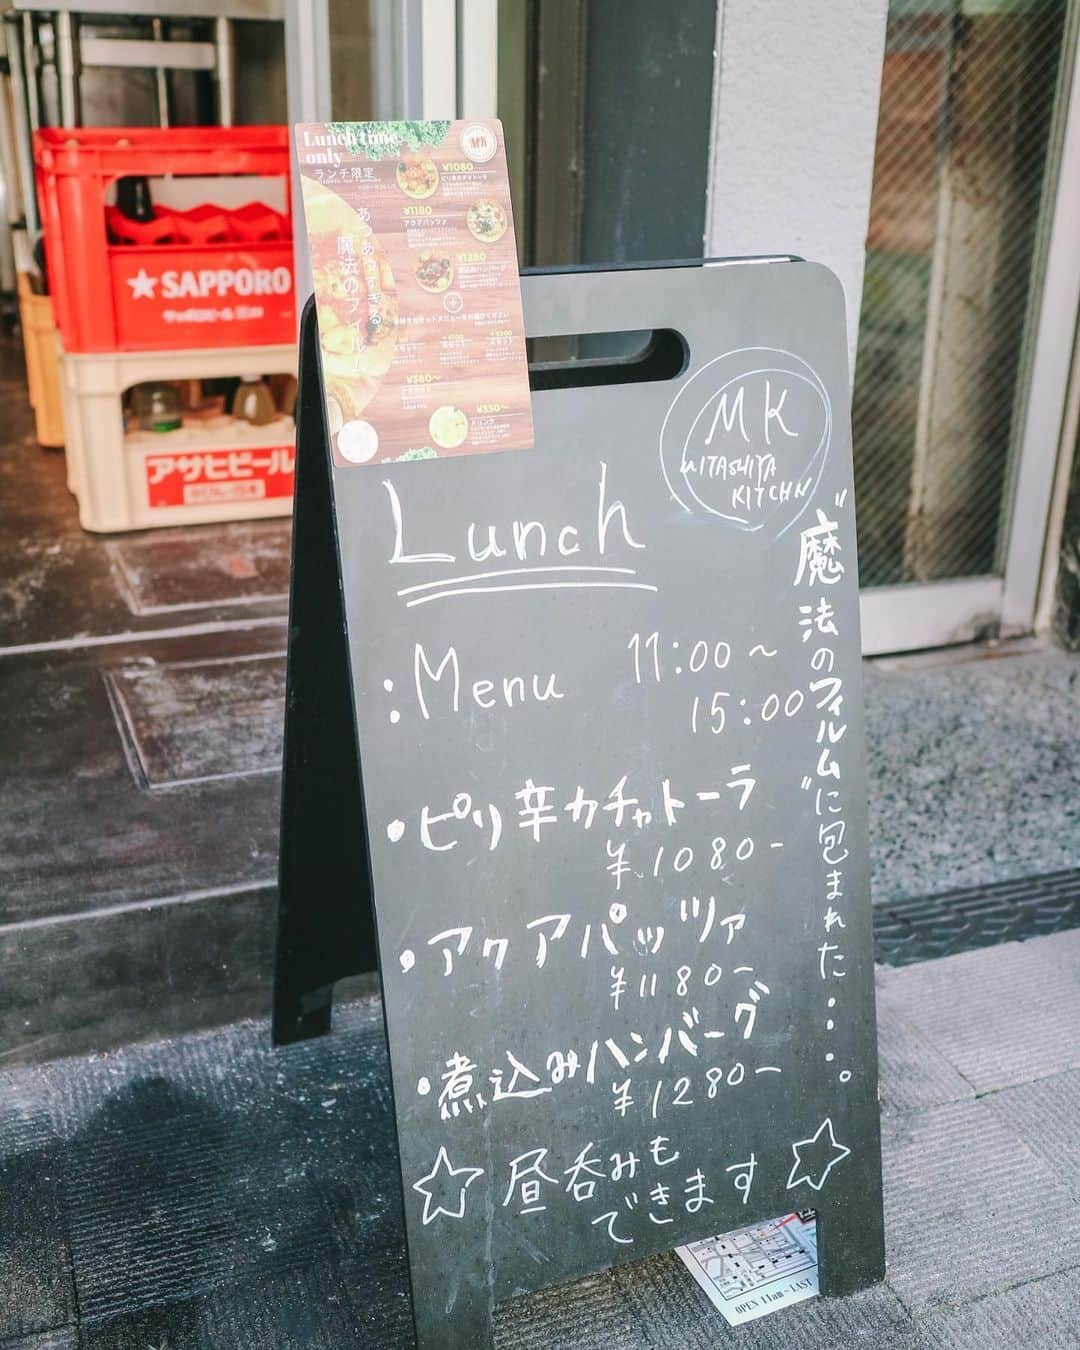 Lunch time
only
ランチ限定
MK
あつあつすぎる
魔法のフィルム
¥1080～
ピリ辛カチャトーラ
¥1180
アクアパッツァ
¥1380
煮込みハンバーグ
¥380～
¥330～
ドリンク
★SAPPORO
サッポロビール
アサヒビール
MK
MITASHIYA
KITCHN
Lunch
:Menu 11:00～
15:00
・ピリ辛カチャトーラ
¥1080-
・アクアパッツァ
¥1180-
・煮込みハンバーグ
¥1280-
☆昼呑みも
できます☆
"魔法のフィルム"に包まれた・・・。
OPEN 11am～LAST